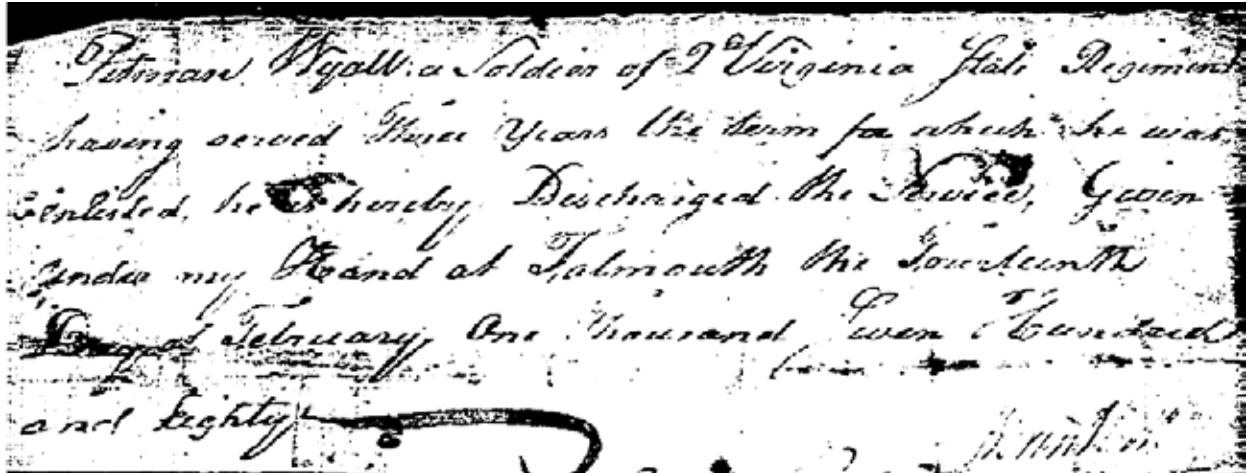 Pitman Wyatt a Soldier of 2d Virginia State Regiment
having served Three Years the term for which he was
Enlisted, he is hereby Discharged the Service, Given
under my Hand at Falmouth the Fourteenth
Day of February, One Thousand Seven Hundred
and Eighty